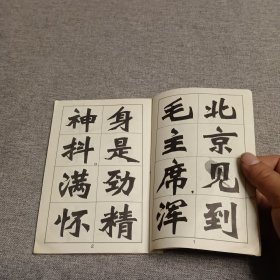 北京见到
毛主席浑
1
身是劲精
神抖满怀
2